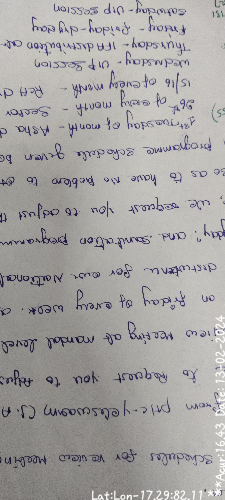 Schedules for review meetin
from phc-yeleswaram
to Request you to
view meeting at mandal level
on friday of every week.
distubence for our National
and sanitation programm
we request you to adjust
as to have no problem to
programme schedule given be
1st tuesday of month - Asha d
26th of every month - Sector
15/16 of every month -
wednesday - VIP session
Thursday - IFA distribution at
Friday - Friday - dryday
Saturday - VIP session
Acur:16.43 Date: 13-02-2024
Lat:Lon-17.29:82.11